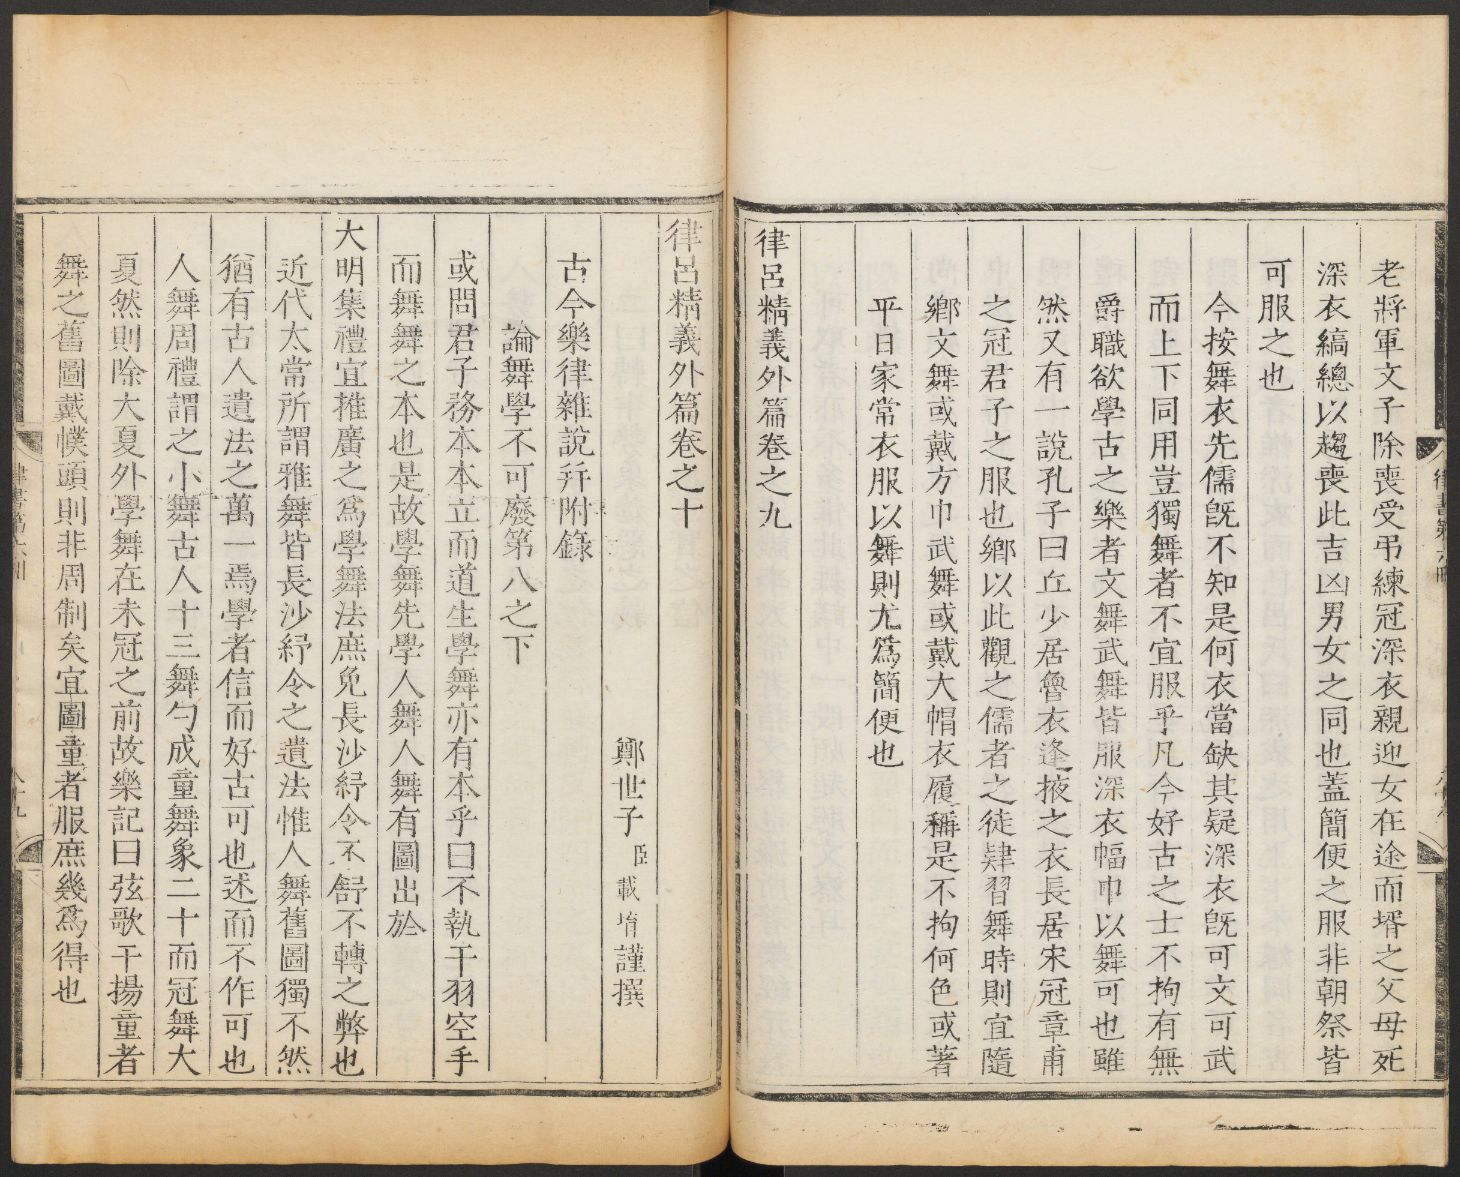 老將軍文子除喪受弔練冠深衣親迎女在途而壻之父母死
深衣縞總以趨喪此吉凶男女之同也蓋簡便之服非朝祭皆
可服之也
今按舞衣先儒旣不知是何衣當缺其疑深衣旣可文可武
而上下同用豈獨舞者不宜服乎凡今好古之士不拘有無
爵職欲學古之樂者文舞武舞皆服深衣幅巾以舞可也雖
然又有一說孔子曰丘少居魯衣逢掖之衣長居宋冠章甫
之冠君子之服也鄉以此觀之儒者之徒肄習舞時則宜隨
鄉文舞或戴方巾武舞或戴大帽衣履稱是不拘何色或著
平日家常衣服以舞則尤爲簡便也
律呂精義外篇卷之九
律呂精義外篇卷之十
鄭世子臣載堉謹撰
古今樂律雜說幷附錄
論舞學不可廢第八之下
或問君子務本本立而道生學舞亦有本乎曰不執干羽空手
而舞舞之本也是故學舞先學人舞人舞有圖出於
大明集禮宜推廣之爲學舞法庶免長沙紓令不舒不轉之弊也
近代太常所謂雅舞皆長沙紓令之遺法惟人舞舊圖獨不然
猶有古人遺法之萬一焉學者信而好古可也述而不作可也
人舞周禮謂之小舞古人十三舞勺成童舞象二十而冠舞大
夏然則除大夏外學舞在未冠之前故樂記曰弦歌干揚童者
舞之舊圖戴幞頭則非周制矣宜圖童者服庶幾爲得也